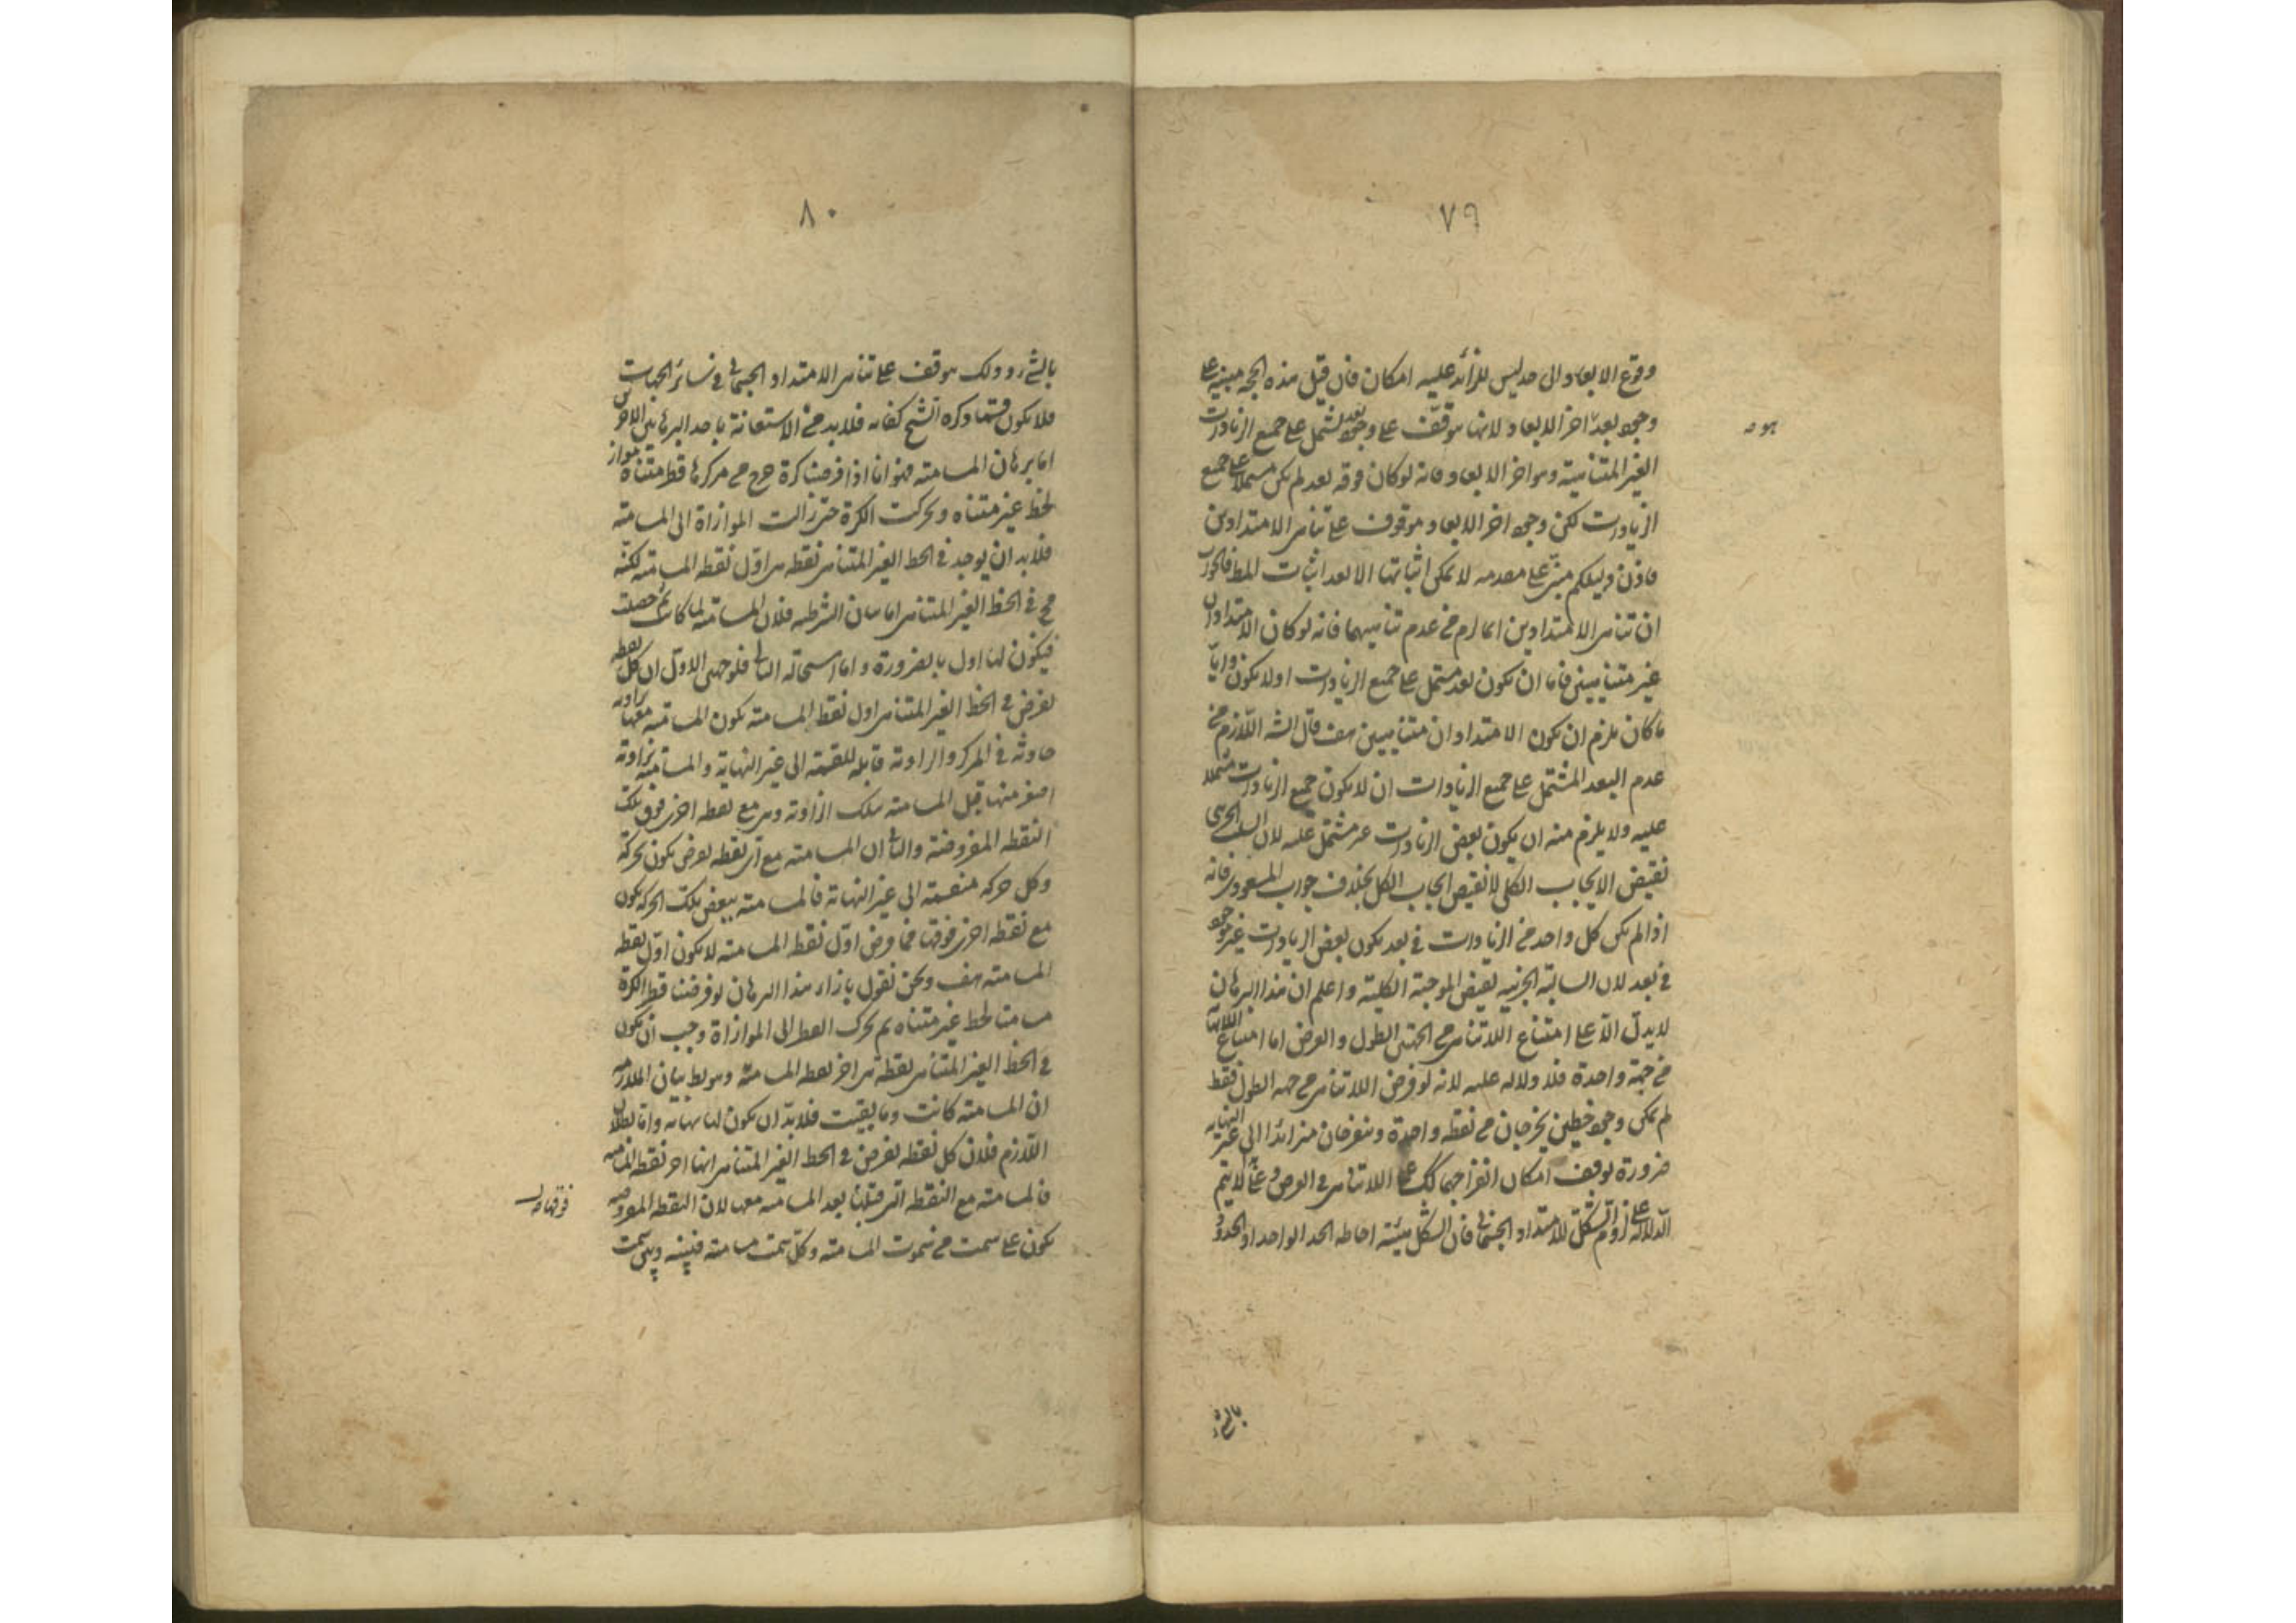 ٧٩
وقوع الابعاد الى حد ليس للزائد عليه امكان فان قيل هذه الحجه مبنية على
وجود بعد اخر الابعاد لانها توقف على وجود بعد يشتمل على جميع الزيادات
الغير المتناهية وهو اخر الابعاد فانه لو كان فوقه بعد لم يكن مشتملا على جميع
الزيادات لكن وجود اخر الابعاد موقوف على تناهى الامتدادين
فاذن دليلكم مبنى على مقدمه لا يمكن اثباتها الا بعد اثبات المط فالجواب
ان تناهى الامتدادين انما لزم من عدم تناهيهما فانه لو كان الامتدادان
غير متناهيين فاما ان يكون بعد مشتمل على جميع الزيادات اولا يكون وايا
ما كان يلزم ان يكون الامتدادان متناهيين هف قال الشه اللازم من
عدم البعد المشتمل على جميع الزيادات ان لا يكون جميع الزيادات مشتملا
عليه ولا يلزم منه ان يكون بعض الزيادات غير مشتمل عليه لان السلب الجزئى
نقيض الايجاب الكلى لا نقيض ايجاب الكل بخلاف جواب المسعودى فانه
اذا لم يكن كل واحد من الزيادات فى بعد يكون بعض الزيادات غير موجود
فى بعد لان السالبة الجزئيه نقيض الموجبة الكلية واعلم ان هذا البرهان
لا يدل الا على امتناع اللاتناهى من الجهتين الطول والعرض اما امتناع اللاتناهى
من جهة واحدة فلا دلاله عليه لانه لو فرض اللاتناهى من جهه الطول فقط
لم يكن وجود خطين يخرجان من نقطه واحدة وينفرجان متزائدا الى غير النهايه
ضرورة توقف امكان انفراجهما كك على اللاتناهى فى العرض فح لا يتم
الدلاله على لزوم الشكل للامتداد الجسمانى فان الشكل هيئة احاطه الحد الواحد او الحدود
هو صه
بالشئ
٨٠
بالشئ وذلك موقف على تناهى الامتداد الجسمانى فى سائر الجهات
فلا يكون فيما ذكره الشيخ كفايه فلابد من الاستعانة باحد البرهانين الاخرين
اما برهان المسامته فهو انا اذا فرضنا كرة خرج من مركزها قطر متناه مواز
لخط غير متناه وتحركت الكرة حتى زالت الموازاة الى المسامته
فلابد ان يوجد فى الخط الغير المتناهى نقطه هى اول نقطه المسامته لكنه
مح فى الخط الغير المتناهى اما بيان الشرطيه فلان المسامته لما كانت حصلت
فيكون لها اول بالضرورة واما استحاله التالى فلوجهين الاول ان كل نقطه
تفرض فى الخط الغير المتناهى اول نقط المسامته يكون المسامته معها بزاويه
حادثه فى المركز والزاوية قابله للقسمة الى غير النهاية والمسامته بزاوية
اصغر منها قبل المسامته بتلك الزاوية وهى مع نقطه اخرى فوق تلك
النقطه المفروضة والثانى ان المسامته مع اى نقطه تفرض يكون بحركة
وكل حركه منقسمة الى غير النهاية فالمسامته ببعض تلك الحركه يكون
مع نقطه اخرى فوقها فما فرض اول نقط المسامته لا يكون اول نقطه
المسامته هف ونحن نقول بازاء هذا البرهان لو فرضنا قطر الكرة
مسامتا لخط غير متناه ثم تحرك القطر الى الموازاة وجب ان يكون
فى الخط الغير المتناهى نقطة هى اخر نقط المسامته وهو بط بيان الملازمه
ان المسامته كانت وما بقيت فلابد ان يكون لها نهايه واما بطلان
اللازم فلان كل نقطه تفرض فى الخط الغير المتناهى انها اخر نقطه المسامته
فالمسامته مع النقطه التى فوقها بعد المسامته معها لان النقطه المفروضه
يكون على سمت من سموت المسامته وكل سمت مسامته فبينه وبين سمت
فوقها